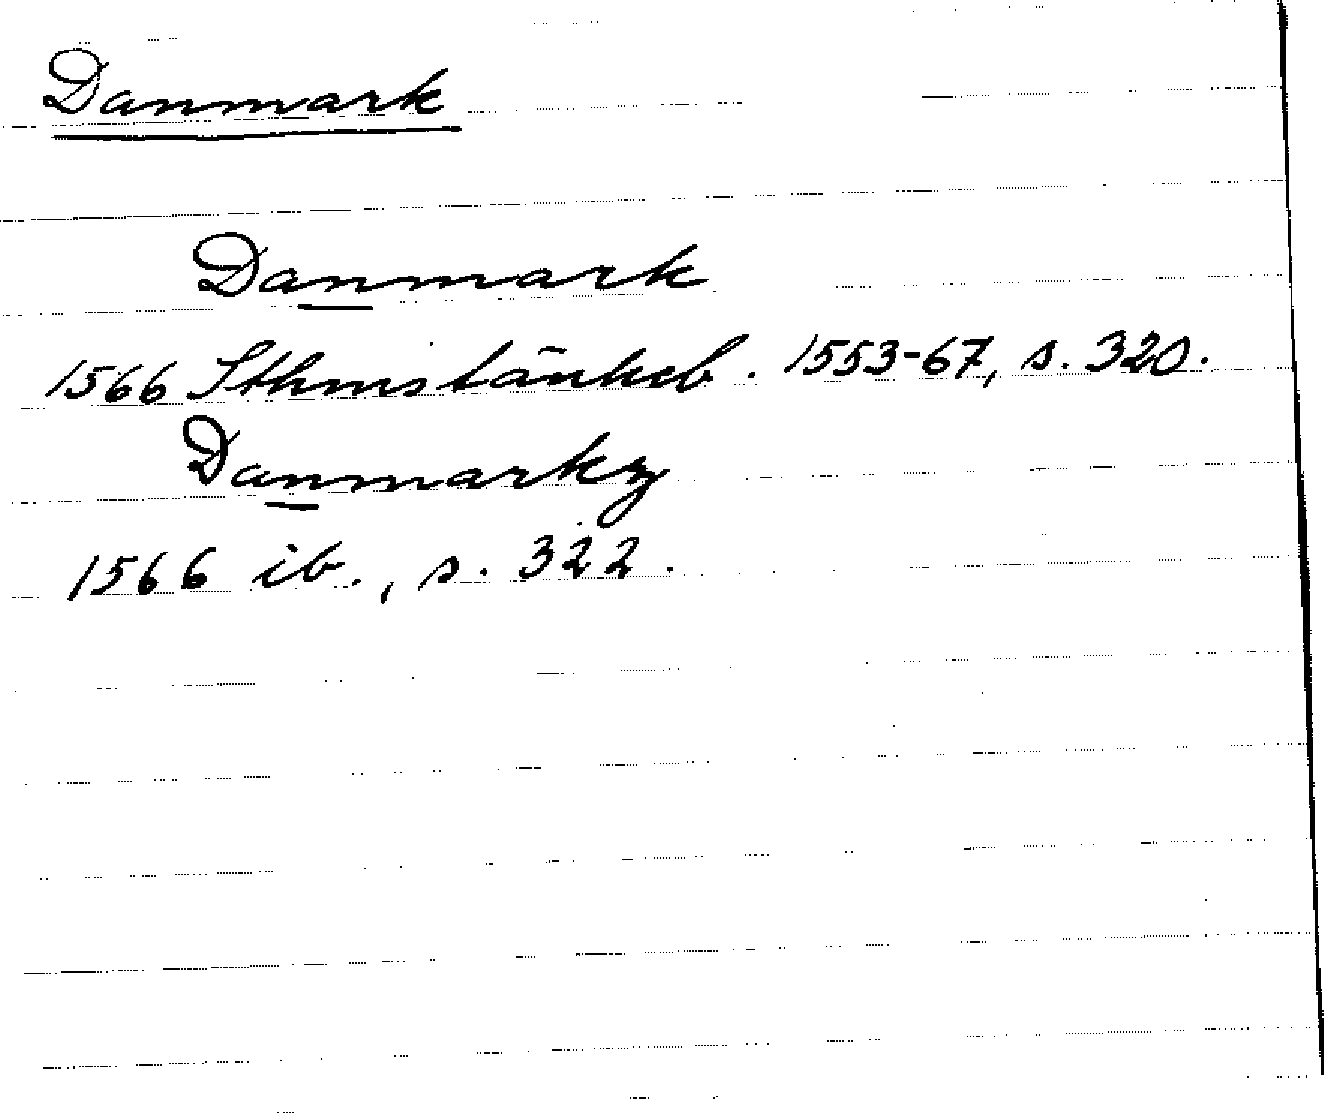 Danmark
Danmark
1566 Sthmstänkeb. 1553-67, s. 320.
Danmarkz
1566 ib., s. 322.